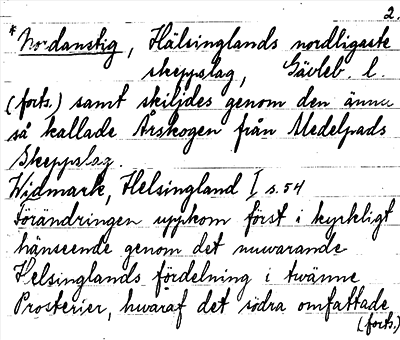 2.
* Nordanstig, Hälsinglands nordligaste
skeppslag, Gävleb. l.
(forts.) samt skiljdes genom den ännu
så kallade Årskogen från Medelpads
Skeppslag.
Widmark, Helsingland I s. 54
Förändringen uppkom först i kyrkligt
hänseende genom det nuwarande
Helsinglands fördelning i twänne
Prosterier, hwaraf det södra omfattade
(forts.)